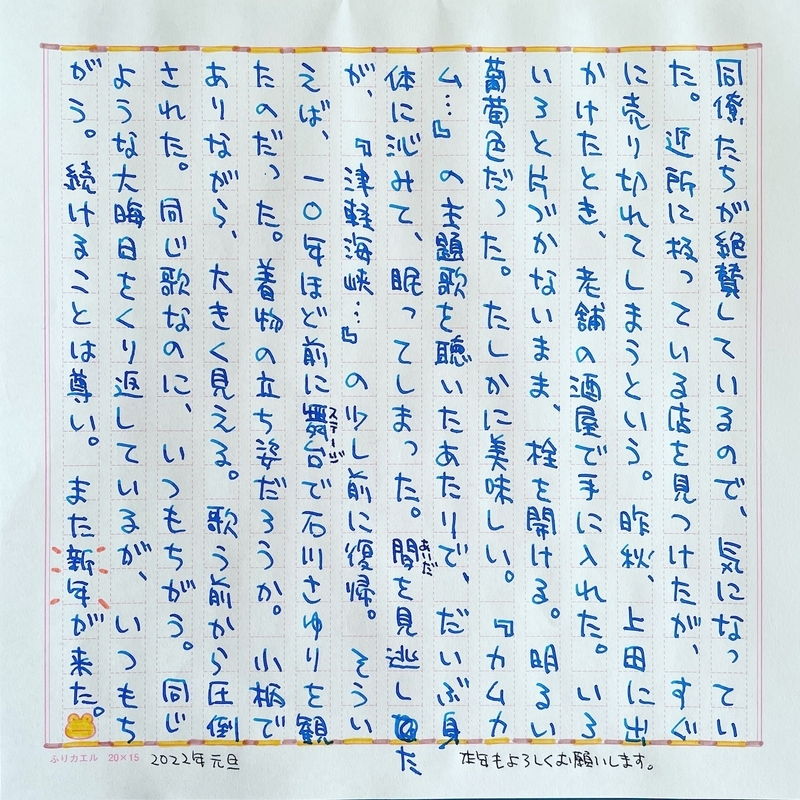 同僚たちが絶賛しているので、気になってい
た。近所に扱っている店を見つけたが、すぐ
に売り切れてしまうという。昨秋、上田に出
かけたとき、老舗の酒屋で手に入れた。いろ
いろと片づかないまま、栓を開ける。明るい
葡萄色だった。たしかに美味しい。『カムカ
ム…』の主題歌を聴いたあたりで、だいぶ身
体に沁みて、眠ってしまった。間を見逃した
あいだ
が、『津軽海峡…』の少し前に復帰。そうい
えば、一〇年ほど前に舞台で石川さゆりを観
ステージ
たのだった。着物の立ち姿だろうか。小柄で
ありながら、大きく見える。歌う前から圧倒
された。同じ歌なのに、いつもちがう。同じ
ような大晦日をくり返しているが、いつもち
がう。続けることは尊い。また新年が来た。
ふりカエル 20×15
2022年元旦
本年もよろしくお願いします。